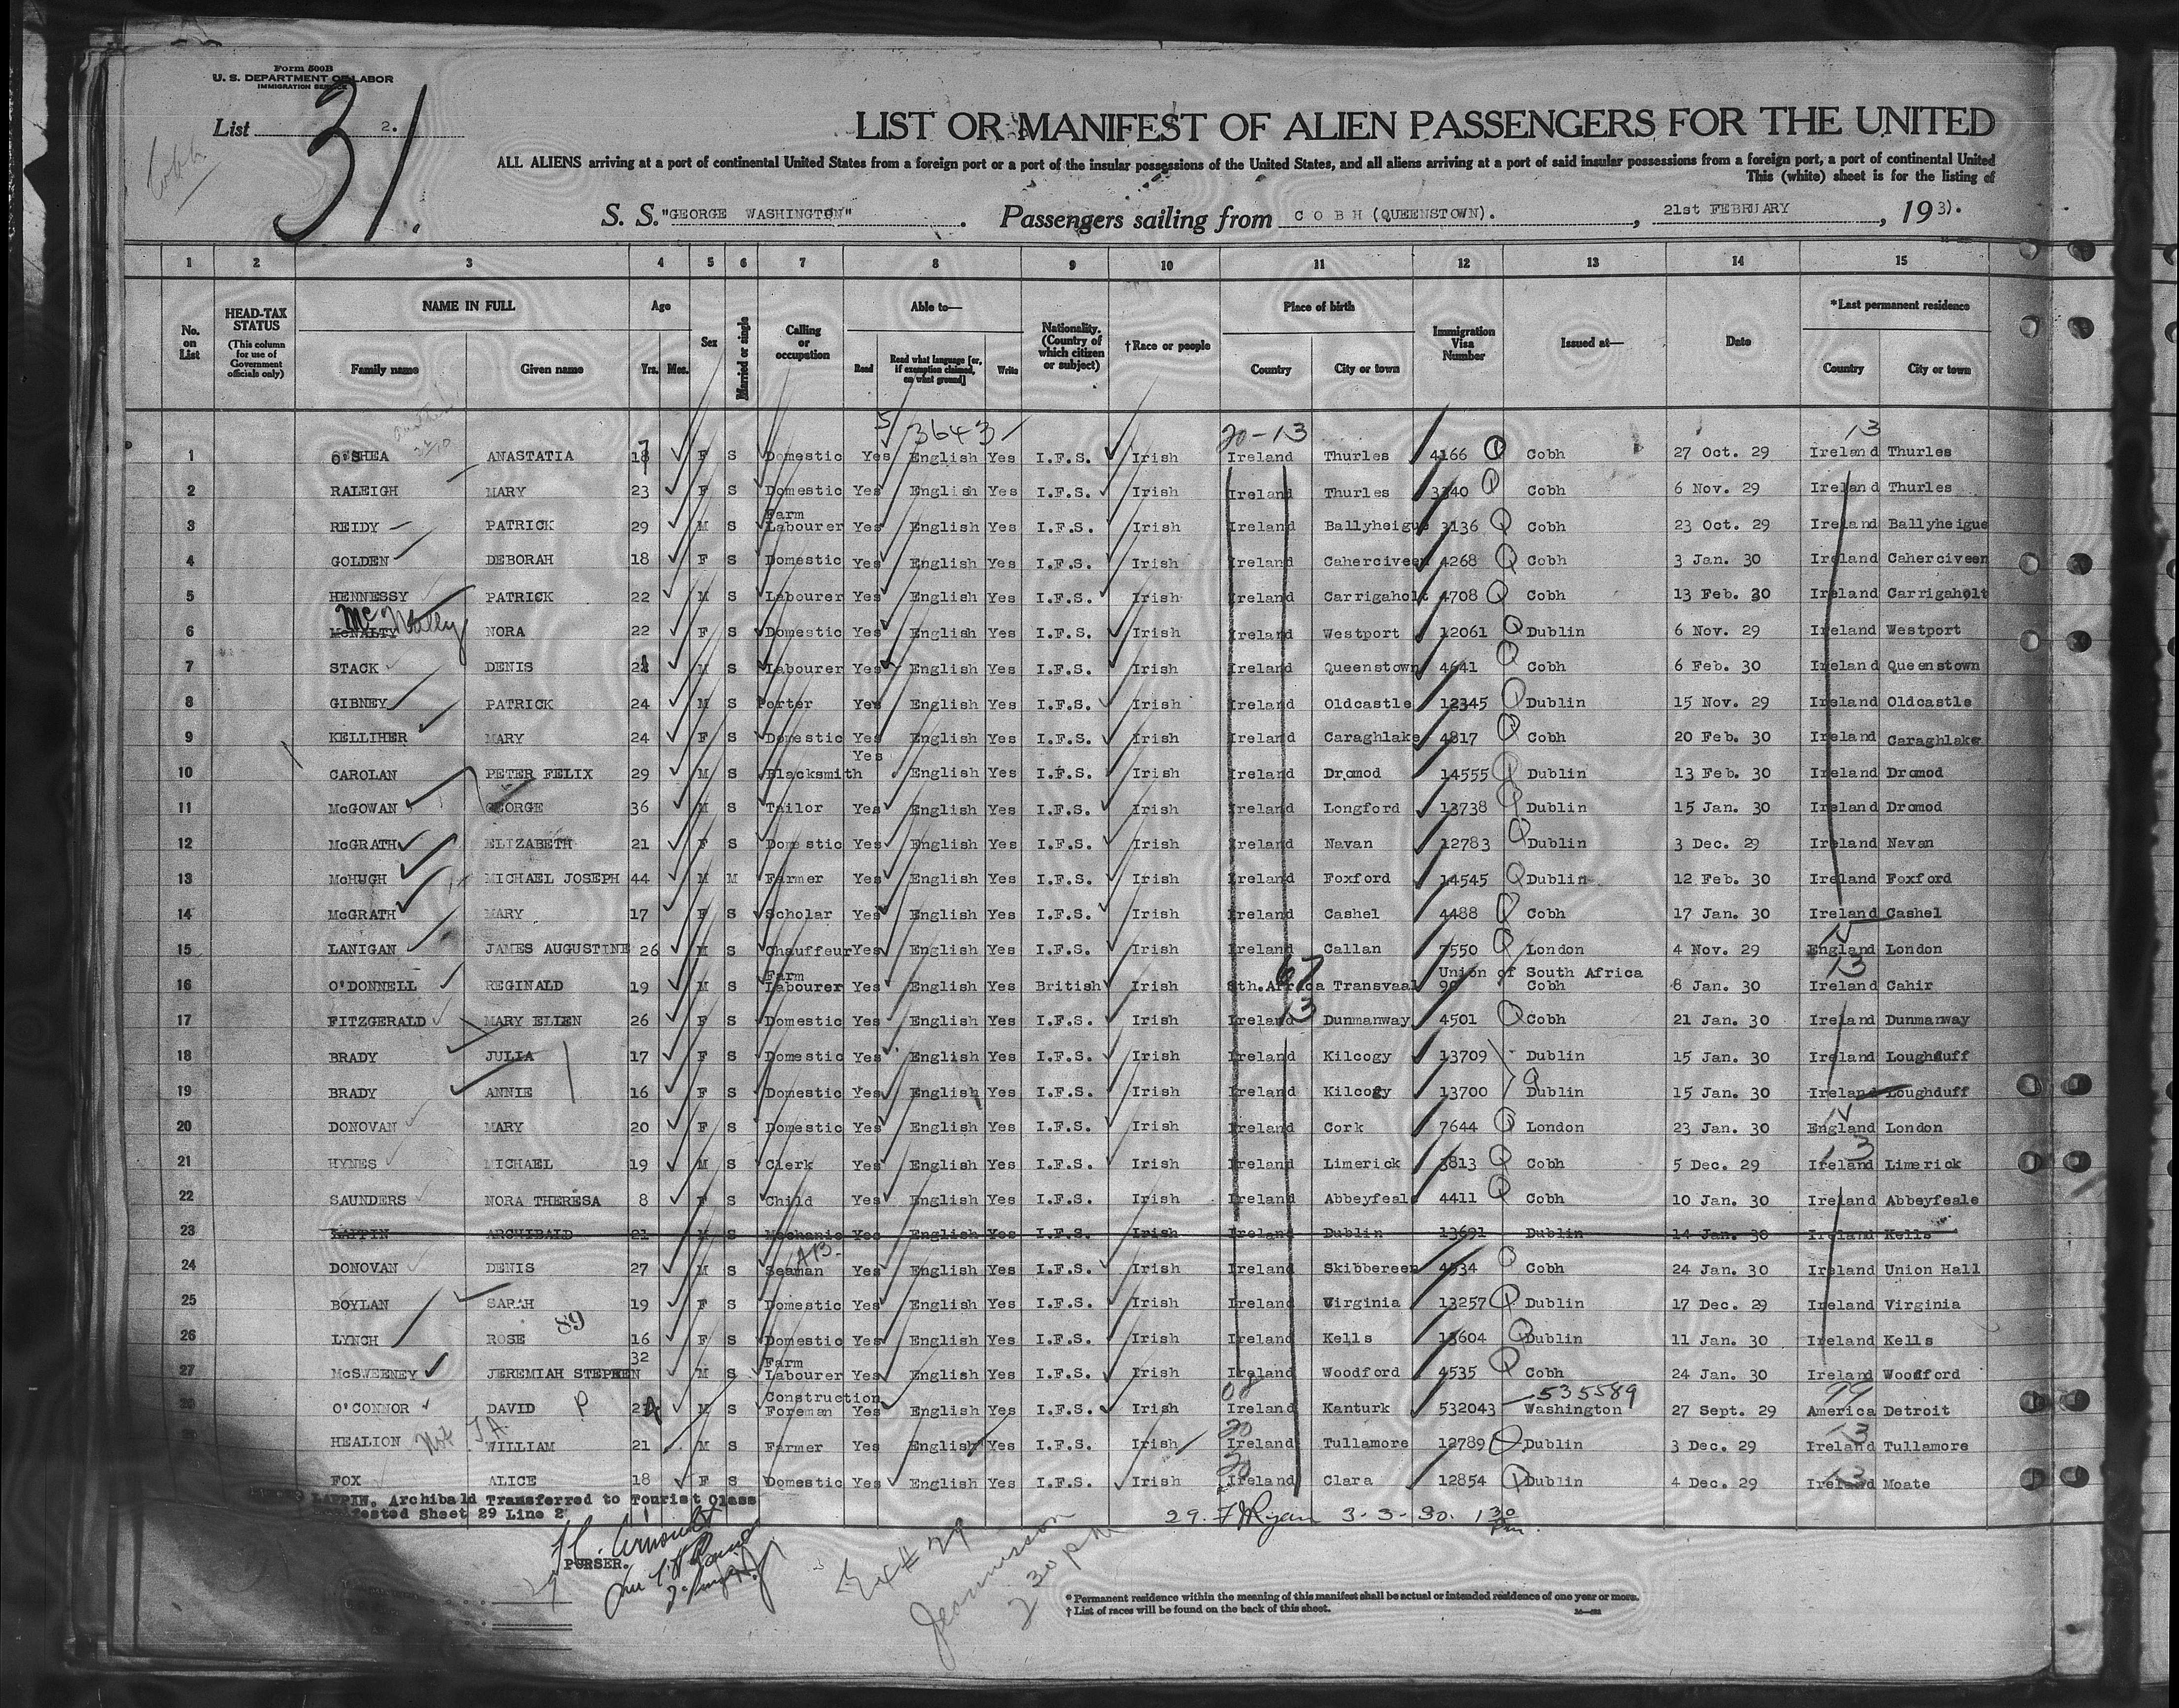 Form 500B
U. S. DEPARTMENT OF LABOR
IMMIGRATION SERVICE
List 2.
31.
Cobh
LIST OR MANIFEST OF ALIEN PASSENGERS FOR THE UNITED
ALL ALIENS arriving at a port of continental United States from a foreign port or a port of the insular possessions of the United States, and all aliens arriving at a port of said insular possessions from a foreign port, a port of continental United
This (white) sheet is for the listing of
S. S. "GEORGE WASHINGTON". Passengers sailing from COBH (QUEENSTOWN)., 21st FEBRUARY, 193).
1 2 3 4 5 6 7 8 9 10 11 12 13 14 15
No. on List HEAD-TAX STATUS (This column for use of Government officials only) NAME IN FULL Family name Given name Age Yrs. Mos. Sex Married or single Calling or occupation Able to— Read Read what language [or, if exemption claimed, on what ground] Write Nationality. (Country of which citizen or subject) †Race or people Place of birth Country City or town Immigration Visa Number Issued at— Date *Last permanent residence Country City or town
5 3643 20-13 13
1 O'SHEA ANASTATIA 18 F S Domestic Yes English Yes I.F.S. Irish Ireland Thurles 4166 Cobh 27 Oct. 29 Ireland Thurles
2 RALEIGH MARY 23 F S Domestic Yes English Yes I.F.S. Irish Ireland Thurles 3340 Cobh 6 Nov. 29 Ireland Thurles
3 REIDY PATRICK 29 M S Farm Labourer Yes English Yes I.F.S. Irish Ireland Ballyheigue 3136 Cobh 23 Oct. 29 Ireland Ballyheigue
4 GOLDEN DEBORAH 18 F S Domestic Yes English Yes I.F.S. Irish Ireland Caherciveen 4268 Cobh 3 Jan. 30 Ireland Caherciveen
5 HENNESSY PATRICK 22 M S Labourer Yes English Yes I.F.S. Irish Ireland Carrigaholt 4708 Cobh 13 Feb. 30 Ireland Carrigaholt
McNally
6 McNALTY NORA 22 F S Domestic Yes English Yes I.F.S. Irish Ireland Westport 12061 Dublin 6 Nov. 29 Ireland Westport
7 STACK DENIS M S Labourer Yes English Yes I.F.S. Irish Ireland Queenstown 4641 Cobh 6 Feb. 30 Ireland Queenstown
8 GIBNEY PATRICK 24 M S Porter Yes English Yes I.F.S. Irish Ireland Oldcastle 12345 Dublin 15 Nov. 29 Ireland Oldcastle
9 KELLIHER MARY 24 F S Domestic Yes English Yes I.F.S. Irish Ireland Caraghlake 4817 Cobh 20 Feb. 30 Ireland Caraghlake
10 CAROLAN PETER FELIX 29 M S Blacksmith Yes English Yes I.F.S. Irish Ireland Dromod 14555 Dublin 13 Feb. 30 Ireland Dromod
11 McGOWAN GEORGE 36 M S Tailor Yes English Yes I.F.S. Irish Ireland Longford 13738 Dublin 15 Jan. 30 Ireland Dromod
12 McGRATH ELIZABETH 21 F S Domestic Yes English Yes I.F.S. Irish Ireland Navan 12783 Dublin 3 Dec. 29 Ireland Navan
13 McHUGH MICHAEL JOSEPH 44 M M Farmer Yes English Yes I.F.S. Irish Ireland Foxford 14545 Dublin 12 Feb. 30 Ireland Foxford
14 McGRATH MARY 17 F S Scholar Yes English Yes I.F.S. Irish Ireland Cashel 4488 Cobh 17 Jan. 30 Ireland Cashel
15 LANIGAN JAMES AUGUSTINE 26 M S Chauffeur Yes English Yes I.F.S. Irish Ireland Callan 7550 London 4 Nov. 29 England London
67 Union of South Africa 13
16 O'DONNELL REGINALD 19 M S Farm Labourer Yes English Yes British Irish Sth.Africa Transvaal Cobh 8 Jan. 30 Ireland Cahir
13
17 FITZGERALD MARY ELLEN 26 F S Domestic Yes English Yes I.F.S. Irish Ireland Dunmanway 4501 Cobh 21 Jan. 30 Ireland Dunmanway
18 BRADY JULIA 17 F S Domestic Yes English Yes I.F.S. Irish Ireland Kilcogy 13709 Dublin 15 Jan. 30 Ireland Loughduff
19 BRADY ANNIE 16 F S Domestic Yes English Yes I.F.S. Irish Ireland Kilcogy 13700 Dublin 15 Jan. 30 Ireland Loughduff
20 DONOVAN MARY 20 F S Domestic Yes English Yes I.F.S. Irish Ireland Cork 7644 London 23 Jan. 30 England London
13
21 HYNES MICHAEL 19 M S Clerk Yes English Yes I.F.S. Irish Ireland Limerick 3813 Cobh 5 Dec. 29 Ireland Limerick
22 SAUNDERS NORA THERESA 8 F S Child Yes English Yes I.F.S. Irish Ireland Abbeyfeale 4411 Cobh 10 Jan. 30 Ireland Abbeyfeale
23 LAPPIN ARCHIBALD 21 M S Mechanic Yes English Yes I.F.S. Irish Ireland Dublin 13691 Dublin 14 Jan. 30 Ireland Kells
AB-
24 DONOVAN DENIS 27 M S Seaman Yes English Yes I.F.S. Irish Ireland Skibbereen 4534 Cobh 24 Jan. 30 Ireland Union Hall
25 BOYLAN SARAH 19 F S Domestic Yes English Yes I.F.S. Irish Ireland Virginia 13257 Dublin 17 Dec. 29 Ireland Virginia
89
26 LYNCH ROSE 16 F S Domestic Yes English Yes I.F.S. Irish Ireland Kells 13604 Dublin 11 Jan. 30 Ireland Kells
27 McSWEENEY JEREMIAH STEPHEN 32 M S Farm Labourer Yes English Yes I.F.S. Irish Ireland Woodford 4535 Cobh 24 Jan. 30 Ireland Woodford
08 535589 99
28 O'CONNOR DAVID P 24 M S Construction Foreman Yes English Yes I.F.S. Irish Ireland Kanturk 532043 Washington 27 Sept. 29 America Detroit
20 13
HEALION Not WILLIAM 21 M S Farmer Yes English Yes I.F.S. Irish Ireland Tullamore 12789 Dublin 3 Dec. 29 Ireland Tullamore
20 13
FOX ALICE 18 F S Domestic Yes English Yes I.F.S. Irish Ireland Clara 12854 Dublin 4 Dec. 29 Ireland Moate
LAPPIN, Archibald Transferred to Tourist Class
Manifested Sheet 29 Line 2
29. Ryan 3-3-30. 1 30 Pm.
PURSER.
Jeannisson
2 30 pm
*Permanent residence within the meaning of this manifest shall be actual or intended residence of one year or more.
† List of races will be found on the back of this sheet.